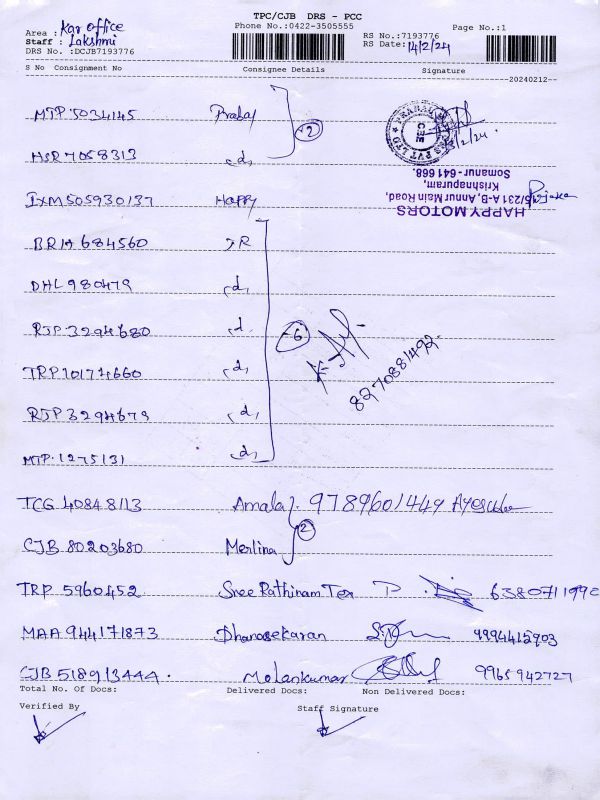 TPC/CJB DRS - PCC
Phone No.:0422-3505555
Page No.:1
Area : Kar office
RS No.:7193776
Staff : Lakshmi
RS Date: 14/2/24
DRS No. :DCJB7193776
S No Consignment No Consignee Details Signature
--20240212--
MTP.5034145 Prabaj
2
MSR 7058313 ,d,
2/24.
IXM505930137 Happy
HAPPY MOTORS
5/231A-B, Annur Main Road,
Krishnapuram,
Somanur - 641 668.
BRIA 684560 JR
DHL 980479 ,d,
RJP 3294680 ,d, 6
8270881492.
TRP 10174660 ,d,
RJP 3294679 ,d,
MTP. 1275131 ,d,
TCG 4084 8113 Amala 9789601449
2
CJB 80203680 Merlina
TRP 5960452 Sree Rathinam Tex P.
MAA 944171873 Dhanasekaran 9994412903
CJB 518913444. 9965942727
Total No. Of Docs: Delivered Docs: Non Delivered Docs:
Verified By Staff Signature